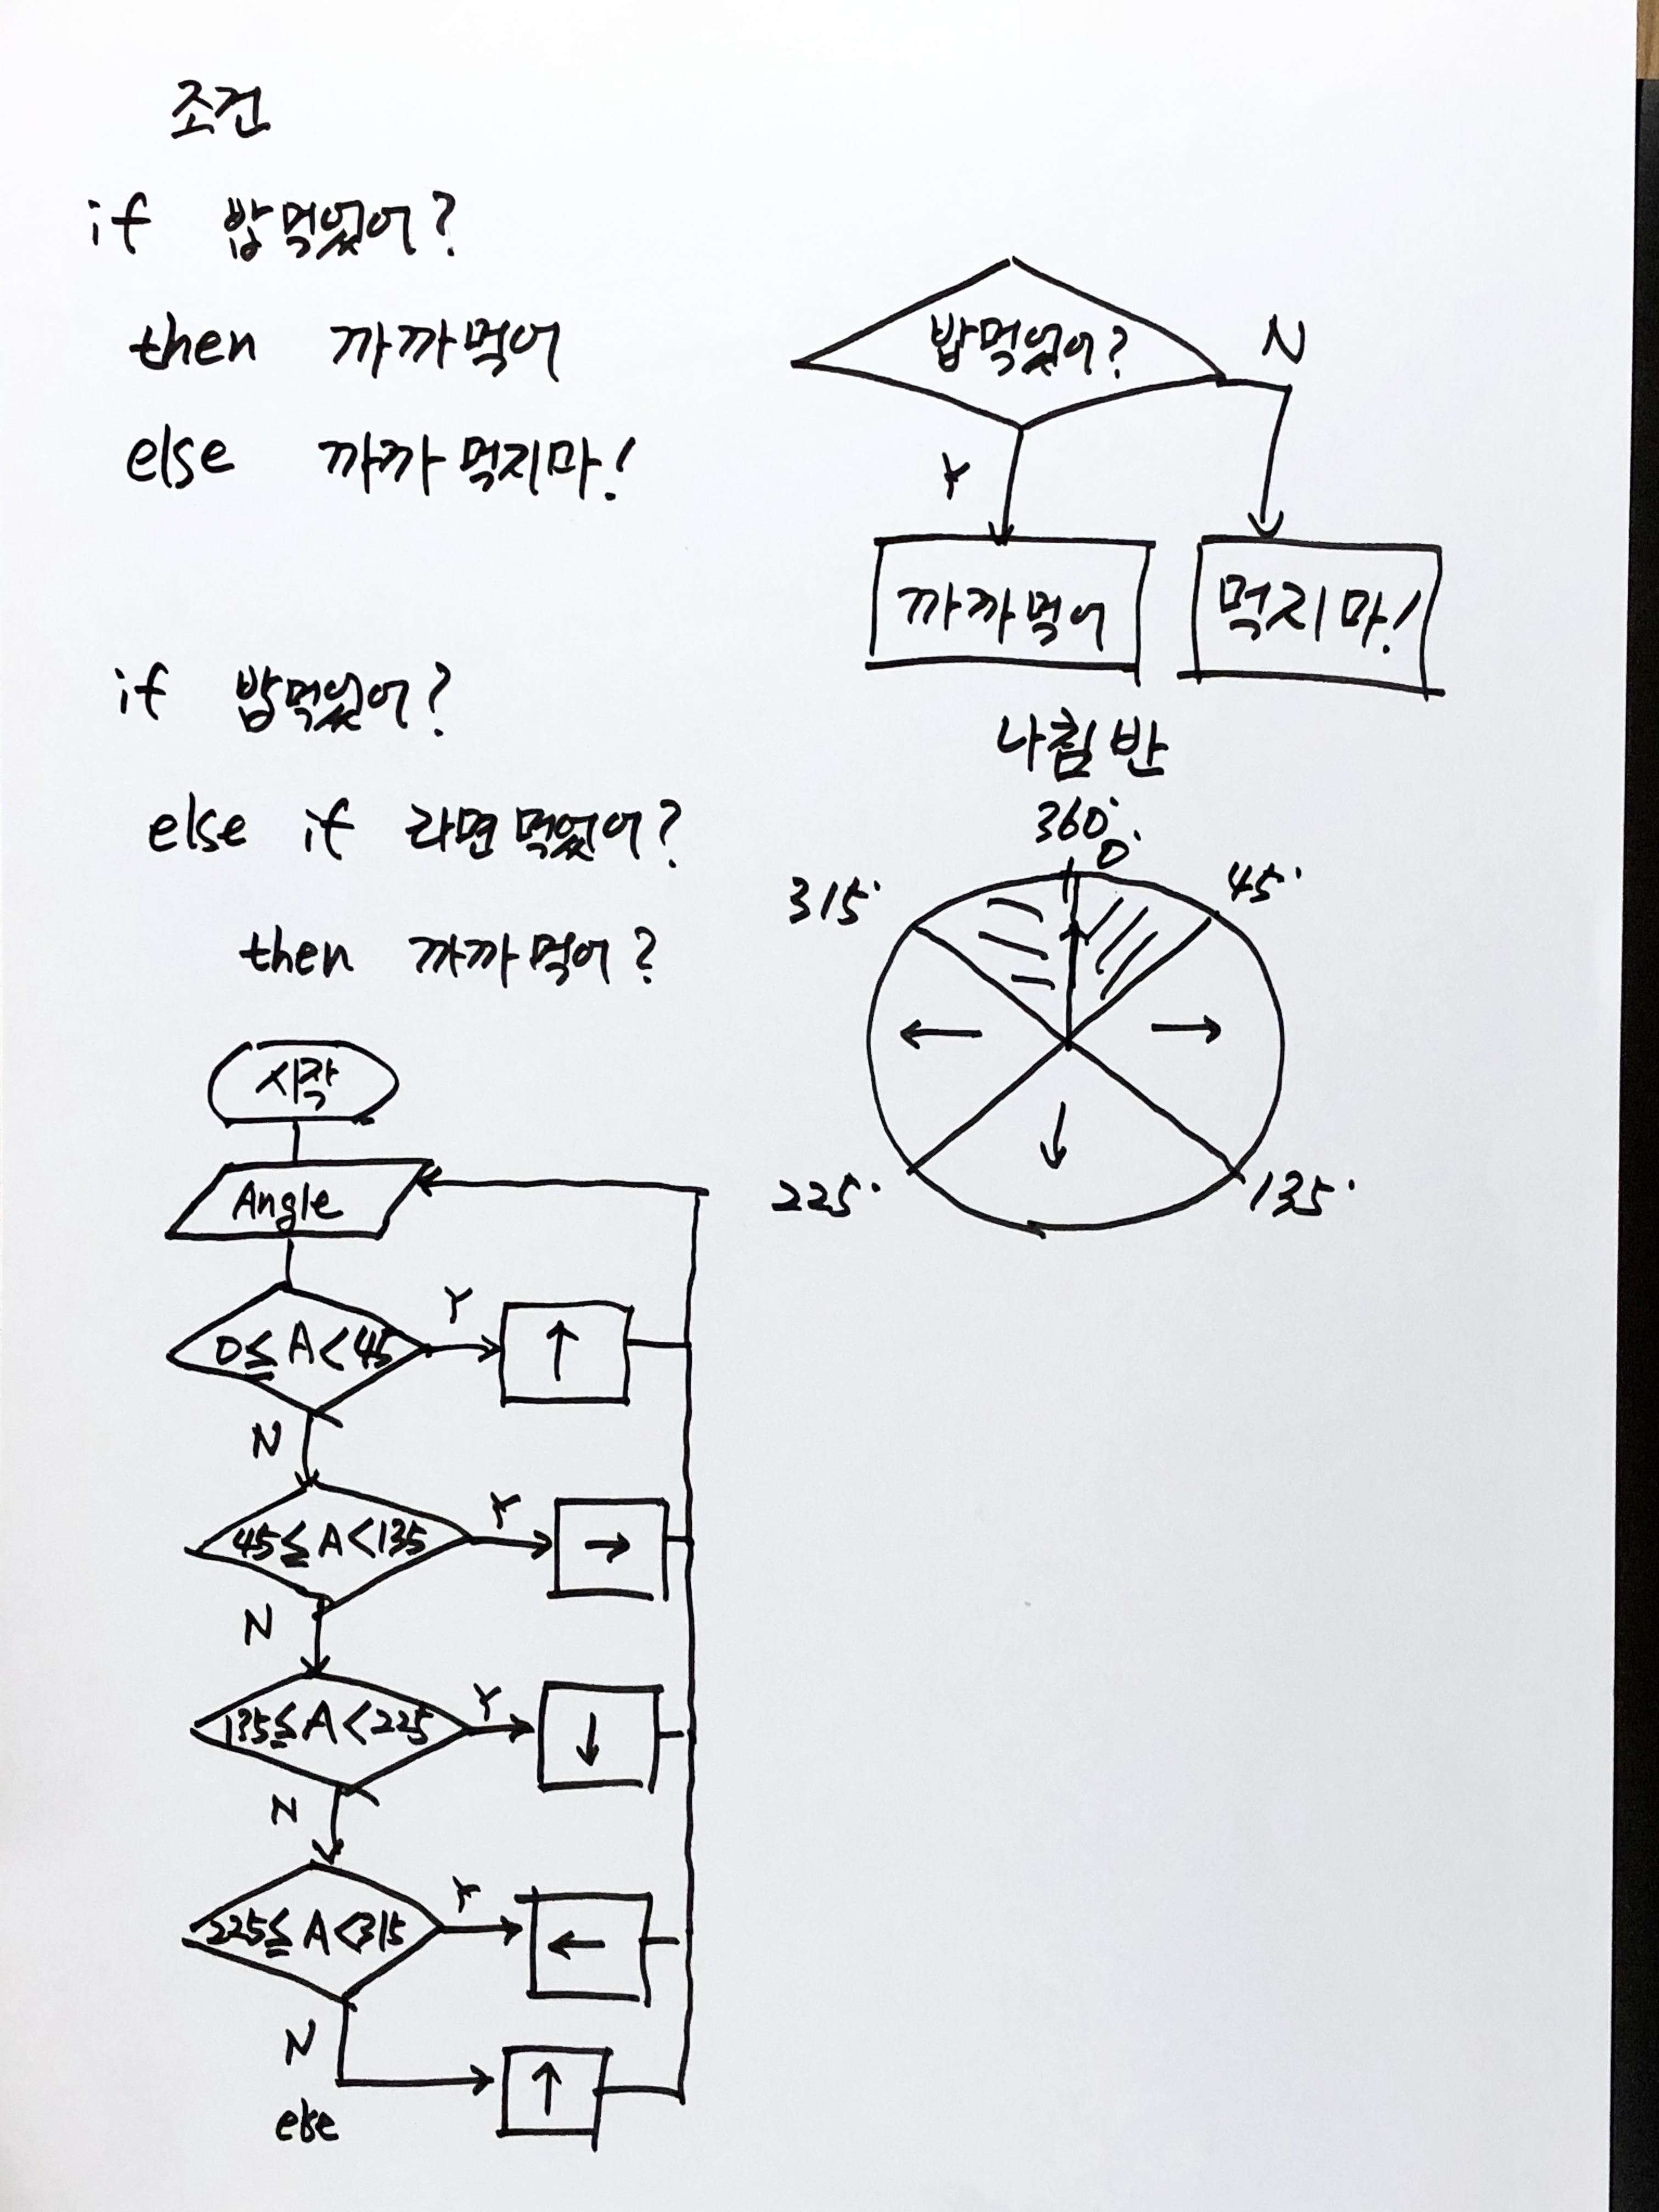 조건
if 밥먹었어?
then 까까먹어
else 까까 먹지마!
밥먹었어?
N
Y
까까먹어
먹지마!
if 밥먹었어?
else if 라면먹었어?
then 까까먹어?
나침반
360°
0°
45°
315°
225°
135°
시작
Angle
0≤A<45
Y
↑
N
45≤A<135
Y
→
N
135≤A<225
Y
↓
N
225≤A<315
Y
←
N
else
↑